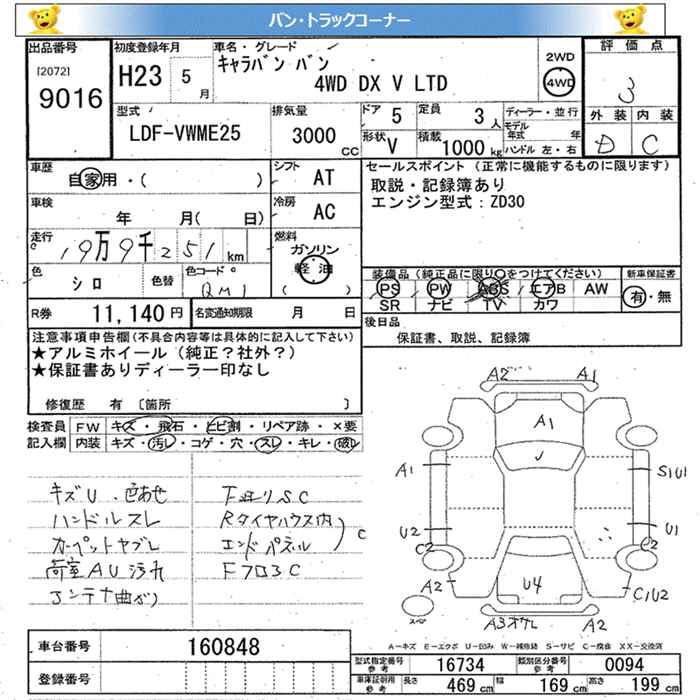 バン・トラックコーナー
出品番号
[2072]
9016
初度登録年月
H23 5月
車名・グレード
キャラバン バン
4WD DX V LTD
2WD
4WD
評価点
3
外装 内装
D C
型式
LDF-VWME25
排気量
3000 CC
ドア 5
定員 3人
形状 V
積載 1000 kg
ディーラー・並行
モデル年式 年
ハンドル 左・右
車歴
自家用・( )
車検
年 月( 日)
走行
19万9千251km
色
シロ
色替
色コード
QM1
シフト
AT
冷房
AC
燃料
ガソリン
軽油
セールスポイント(正常に機能するものに限ります)
取説・記録簿あり
エンジン型式:ZD30
装備品(純正品に限り○をつけてください)
PS PW ABS エアB AW
SR ナビ TV カワ
新車保証書
有・無
R券 11,140円
名変通知期限 月 日
後日品
保証書、取説、記録簿
注意事項申告欄(不具合内容等は具体的に記入して下さい)
★アルミホイール(純正?社外?)
★保証書ありディーラー印なし
修復歴 有〔箇所 〕
検査員記入欄
FW キズ・飛石・ヒビ割・リペア跡・×要
内装 キズ・汚レ・コゲ・穴・スレ・キレ・破レ
キズU・色あせ
ハンドルスレ
カーペットヤブレ
荷室AU汚れ
アンテナ曲がり
下廻りSC
Rタイヤハウス内
エンドパネル
C
Fフロ3C
A2 A1
A1
A1 S1U1
U2 U1
C2 C2
A2 U4 C1U2
A3オサレ A2
A=キズ E=エクボ U=凹み W=補修跡 S=サビ C=腐食 XX=交換済
車台番号 160848
登録番号
型式指定番号 参考 16734
類別区分番号 参考 0094
車庫証明用 参考 長さ 469cm 幅 169cm 高さ 199cm